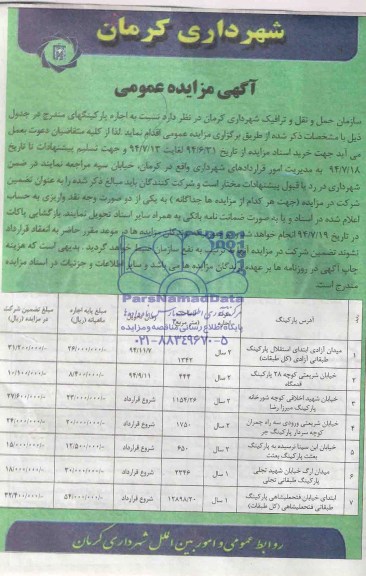 شهرداری کرمان
آگهی مزایده عمومی
سازمان حمل و نقل و ترافیک شهرداری کرمان در نظر دارد نسبت به اجاره پارکینگهای مندرج در جدول
ذیل با مشخصات ذکر شده از طریق برگزاری مزایده عمومی اقدام نماید .لذا از کلیه متقاضیان دعوت بعمل
می آید جهت خرید اسناد مزایده از تاریخ ۹۴/۶/۳۱ لغایت ۹۴/۷/۱۳ و جهت تسلیم پیشنهادات تا تاریخ
۹۴/۷/۱۸ به مدیریت امور قراردادهای شهرداری واقع در کرمان، خیابان سپه مراجعه نمایند در ضمن
شهرداری در رد یا قبول پیشنهادات مختار است و شرکت کنندگان باید مبالغ ذکر شده را به عنوان تضمین
شرکت در مزایده (جهت هر کدام از مزایده ها جداگانه ) به یکی از دو صورت وجه نقد واریزی به حساب
اعلام شده در اسناد و یا به صورت ضمانت نامه بانکی به همراه سایر اسناد تحویل نمایند. بازگشایی پاکات
در تاریخ ۹۴/۷/۱۹ انجام خواهد شد مزایده ها در موعد مقرر حاضر به انعقاد قرارداد
نشوند تضمین شرکت در مزایده به نفع سازمان ضبط خواهد گردید . بدیهی است که هزینه
چاپ آگهی در روزنامه ها بر عهده برندگان مزایده ها می باشد و سایر اطلاعات و جزئیات در اسناد مزایده
مندرج است.
ParsNamadData
پایگاه اطلاع رسانی مناقصه و مزایده
۰۲۱-۸۸۳۴۹۶۷۰-۵
آدرس پارکینگ مبلغ پایه اجاره ماهیانه (ریال) مبلغ تضمین شرکت در مزایده (ریال)
۱ میدان آزادی ابتدای استقلال پارکینگ طبقاتی آزادی (کل طبقات) ۲ سال ۱۳۴۲ ۹۴/۱۱/۷ ۲۶/۰۰۰/۰۰۰/- ۳۱/۲۰۰/۰۰۰/-
۲ خیابان شریعتی کوچه ۲۸ پارکینگ ۲ سال ۴۴۳ ۹۴/۹/۱۱ ۸/۴۰۰/۰۰۰/- ۱۰/۱۰۰/۰۰۰/-
۳ خیابان شهید اخلاقی کوچه شورخانه پارکینگ میرزا رضا ۲ سال ۱۱۵۷/۲۶ شروع قرارداد ۲۳/۰۰۰/۰۰۰/- ۲۷/۶۰۰/۰۰۰/-
۴ خیابان شریعتی ورودی سه راه چمران کوچه سردار پارکینگ ۲ سال ۱۷۵۰ شروع قرارداد ۲۰/۰۰۰/۰۰۰/- ۲۴/۰۰۰/۰۰۰/-
۵ خیابان ابن سینا نرسیده به پارکینگ بعثت پارکینگ بعثت ۲ سال ۶۵۰ شروع قرارداد ۱۲/۵۰۰/۰۰۰/- ۱۵/۰۰۰/۰۰۰/-
۶ میدان ارگ خیابان شهید تجلی پارکینگ طبقاتی تجلی ۱ سال ۲۳۴۶ شروع قرارداد ۳۰/۰۰۰/۰۰۰/- ۱۸/۰۰۰/۰۰۰/-
۷ ابتدای خیابان فتحعلیشاهی پارکینگ طبقاتی فتحعلیشاهی (کل طبقات) ۱ سال ۱۲۸۹۸/۲۰ شروع قرارداد ۵۴/۰۰۰/۰۰۰/- ۳۲/۴۰۰/۰۰۰/-
روابط عمومی و امور بین الملل شهرداری کرمان